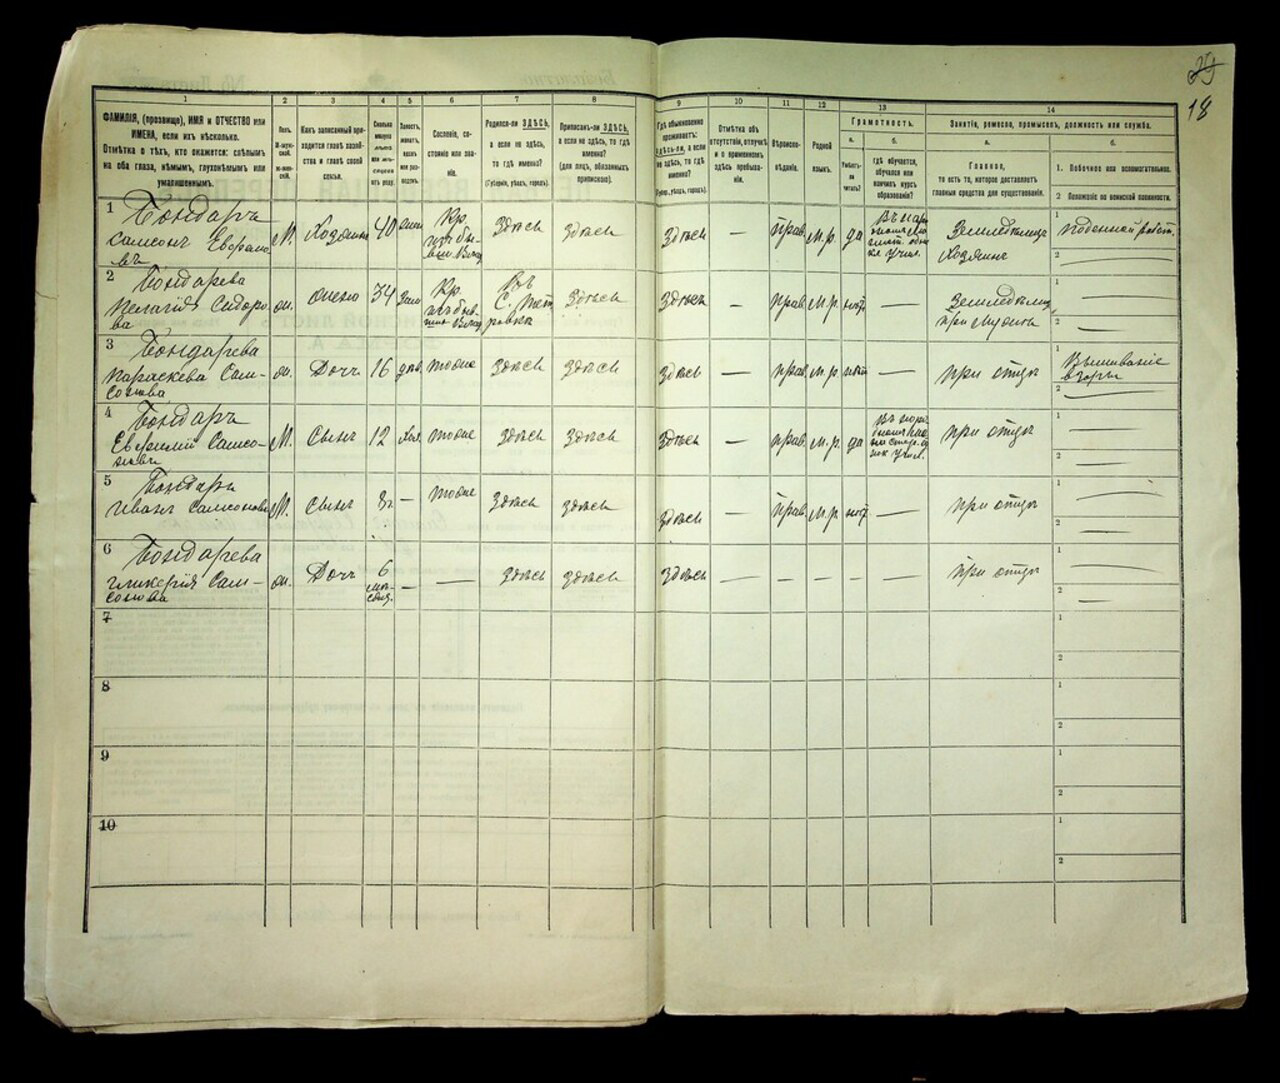 39
18
1
2
3
4
5
6
7
8
9
10
11
12
13
14
ФАМИЛІЯ, (прозвище), ИМЯ и ОТЧЕСТВО или
ИМЕНА, если ихъ нѣсколько.
Отмѣтка о тѣхъ, кто окажется: слѣпымъ
на оба глаза, нѣмымъ, глухонѣмымъ или
умалишеннымъ.
Полъ.
М-мужской.
Ж-женскій.
Какъ записанный при-
ходится главѣ хозяй-
ства и главѣ своей
семьи.
Сколько
минуло
лѣтъ
или мѣ-
сяцевъ
отъ роду.
Холостъ,
женатъ,
вдовъ
или раз-
веденъ.
Сословіе, со-
стояніе или зва-
ніе.
Родился-ли ЗДѢСЬ,
а если не здѣсь,
то гдѣ именно?
(Губернія, уѣздъ, городъ).
Приписанъ-ли ЗДѢСЬ,
а если не здѣсь, то гдѣ
именно?
(для лицъ, обязанныхъ
припискою).
Гдѣ обыкновенно
проживаетъ:
ЗДѢСЬ-ЛИ, а если
не здѣсь, то гдѣ
именно?
(Губер., уѣздъ, городъ).
Отмѣтка объ
отсутствіи, отлучкѣ
и о временномъ
здѣсь пребыва-
ніи.
Вѣроиспо-
вѣданіе.
Родной
языкъ.
Грамотность.
а.
Умѣетъ-
ли
читать?
б.
гдѣ обучается,
обучался или
кончилъ курсъ
образованія?
Занятіе, ремесло, промыселъ, должность или служба.
а.
Главное,
то есть то, которое доставляетъ
главныя средства для существованія.
б.
1. Побочное или вспомогательное.
2 Положеніе по воинской повинности.
1
Бондарь
Самсонъ Ефремо-
въ
М.
Хозяинъ
40
жен
Кр.
изъ бы-
вш. Влад
Здѣсь
Здѣсь
Здѣсь
—
прав
м.р.
да
Земледѣлецъ
Хозяинъ
1
Поденной работ.
2
2
Бондарева
Пелагія Сидоро-
ва
ж.
жена
34
зам
Кр.
изъ быв-
ших Влад
Въ
С. Пет
ровки
Здѣсь
Здѣсь
—
прав
м.р.
нет
—
Земледѣлец
при мужѣ
1
2
3
Бондарева
Параскева Сам-
сонова
ж.
Дочь
16
дѣв
тоже
Здѣсь
Здѣсь
Здѣсь
—
прав
м.р.
нет
—
при отцѣ
1
Вышиваніе
2
4
Бондарь
Евфимій Самсо-
новъ
М.
Сынъ
12
хол
тоже
Здѣсь
Здѣсь
Здѣсь
—
прав
м.р.
да
при отцѣ
1
2
5
Бондарь
Иванъ Самсоновъ
М.
Сынъ
8
—
тоже
Здѣсь
Здѣсь
Здѣсь
—
прав
м.р.
нет
—
при отцѣ
1
2
6
Бондарева
Гликерія Сам-
сонова
ж.
Дочь
6
—
—
Здѣсь
Здѣсь
Здѣсь
—
—
—
—
—
при отцѣ
1
2
7
1
2
8
1
2
9
1
2
10
1
2